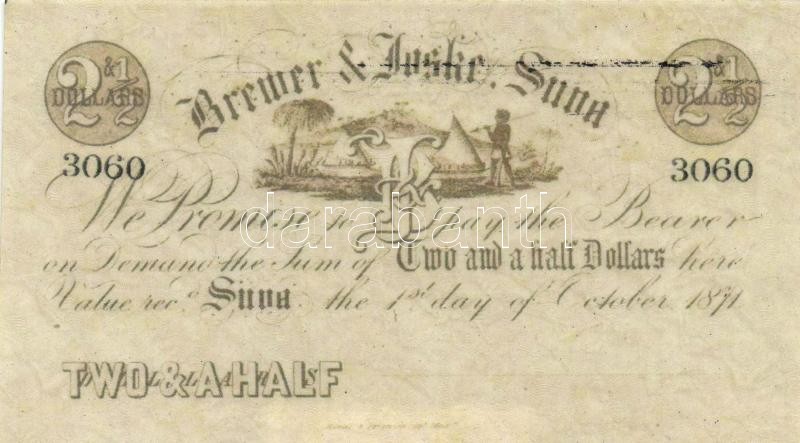 2 & 1/2 DOLLARS
Brewer & Joske, Suva
2 & 1/2 DOLLARS
3060
3060
We Promise to Pay the Bearer
on Demand the Sum of Two and a half Dollars here
Value recd Suva the 1st day of October 1871
TWO & A HALF
DOLLARS
darabanth